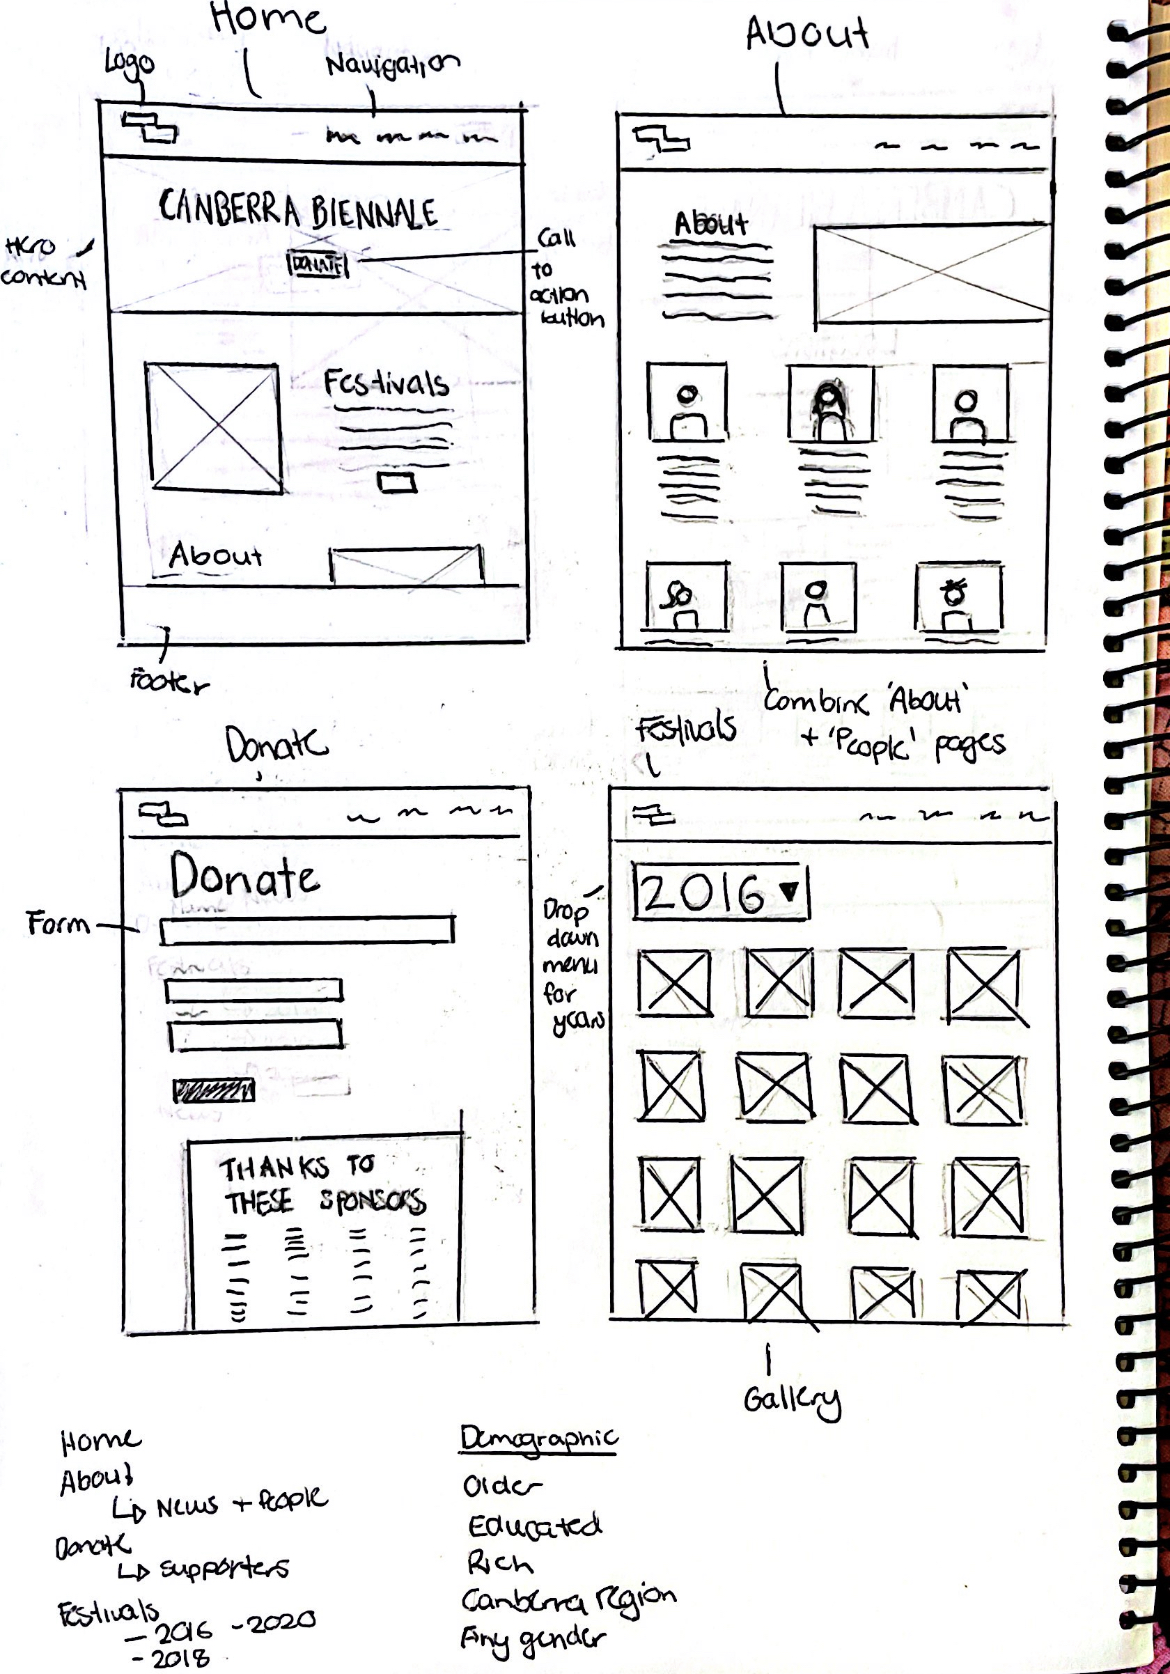 Home
Logo
Navigation
CANBERRA BIENNALE
DONATE
Hero
content
Call
to
action
button
Festivals
About
Footer
About
About
Combine 'About'
+ 'People' pages
Donate
Donate
Form
THANKS TO
THESE SPONSORS
Festivals
2016
Drop
down
menu
for
years
Gallery
Home
About
↳ News + People
Donate
↳ supporters
Festivals
- 2016 - 2020
- 2018
Demographic
Older
Educated
Rich
Canberra region
Any gender